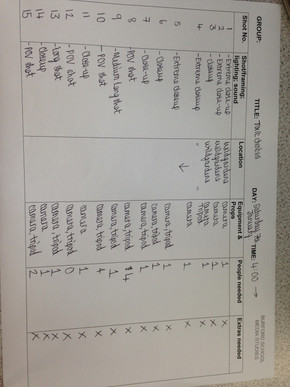 BURFORD SCHOOL
MEDIA STUDIES
GROUP: TITLE: DAY: Saturday 7th January TIME: 4:00 →
Shot No. Shot/framing, lighting, sound Location Equipment & Props People needed Extras needed
1 - Extreme close-up camera 1 X
2 - Extreme close-up camera 1 X
3 - closeup camera 1 X
4 - Extreme closeup " Tripod camera 1 X
5 - Extreme closeup ↓ camera 1 X
6 - closeup camera, tripod 1 X
7 - close-up camera, tripod 1 X
8 - POV shot camera, tripod 4 X
9 - Medium long shot camera, tripod 1 X
10 - POV shot camera, tripod 4 X
11 - close-up camera 1 X
12 POV shot camera, tripod 0 X
13 - Long shot camera, tripod 1 X
14 - closeup camera, tripod 1 X
15 - POV shot camera, tripod 2 X